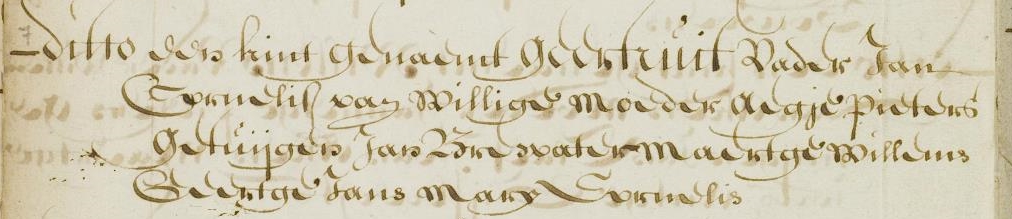 ditto een kint genaemt geertruijt Vader Jan
Cornelis van Willige Moeder Aegje pieters
getuijgen Jan Brevater Maertge Willems
Geertge Jans Mary Cornelis